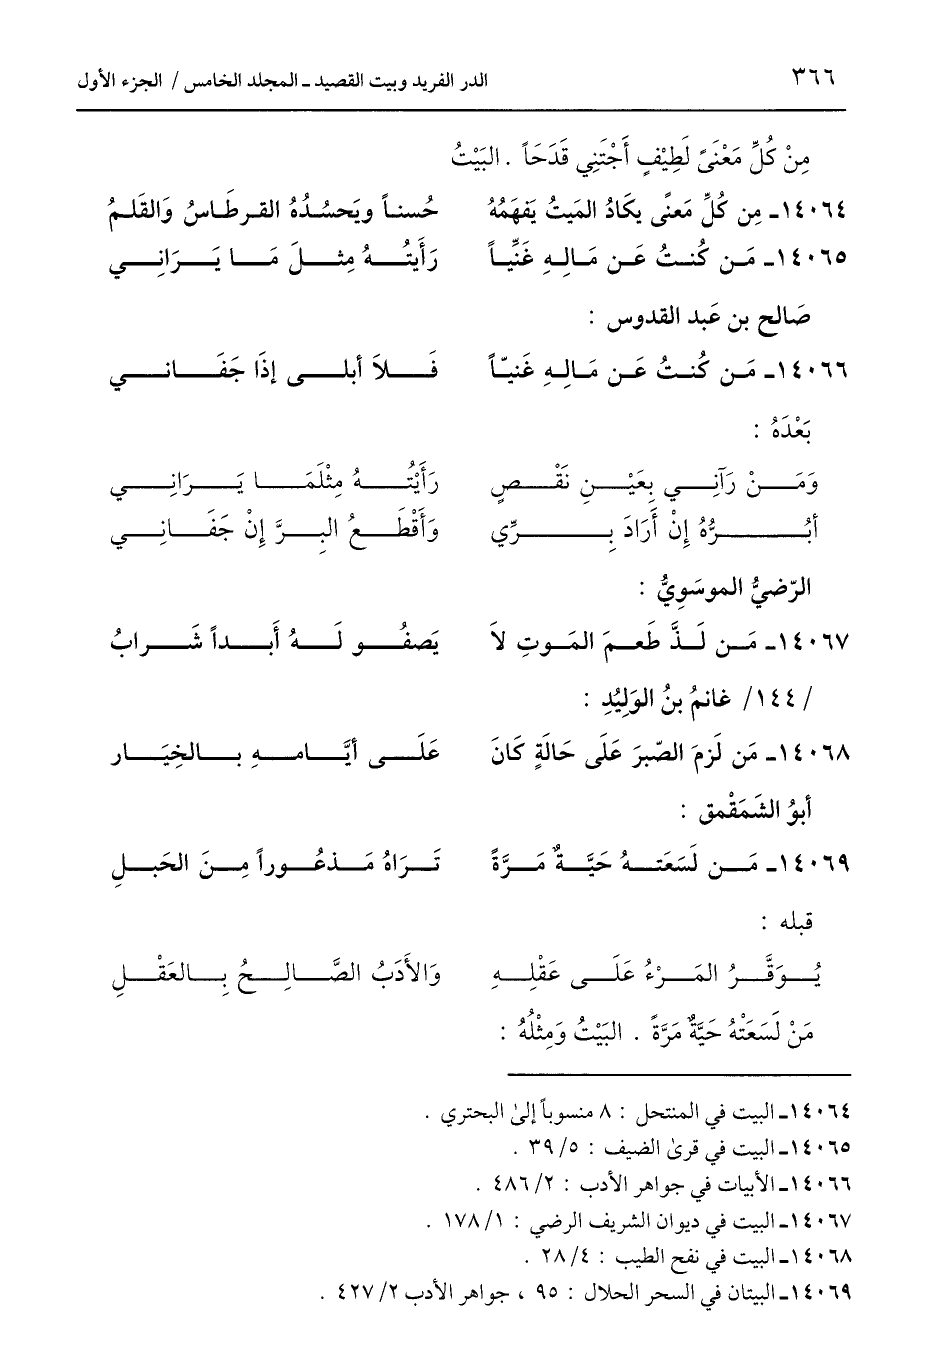 ٣٦٦ الدر الفريد وبيت القصيد ـ المجلد الخامس / الجزء الأول
مِنْ كُلِّ مَعْنَىً لَطِيْفٍ أَجْتَنِي قَدَحَاً . البَيْتُ
١٤٠٦٤ـ مِن كُلِّ مَعنًى يكَادُ المَيتُ يَفهَمُهُ حُسناً ويَحسُدُهُ القرطَاسُ وَالقَلمُ
١٤٠٦٥ـ مَن كُنتُ عَن مَالِهِ غَنِّياً رَأَيتُهُ مِثلَ مَا يَرَانِي
صَالح بن عَبد القدوس :
١٤٠٦٦ـ مَن كُنتُ عَن مَالِهِ غَنيّاً فَلاَ أبلى إذَا جَفَاني
بَعْدَهُ :
وَمَنْ رَآنِي بِعَيْنِ نَقْصٍ رَأَيْتُهُ مِثْلَمَا يَرَانِي
أبُرُّهُ إِنْ أَرَادَ بِرِّي وَأَقْطَعُ البِرَّ إِنْ جَفَانِي
الرّضيُّ الموسَوِيُّ :
١٤٠٦٧ـ مَن لَذَّ طَعمَ المَوتِ لاَ يَصفُو لَهُ أَبَداً شَرابُ
/١٤٤/ غانمُ بنُ الوَلِيْدِ :
١٤٠٦٨ـ مَن لَزمَ الصّبرَ عَلَى حَالَةٍ كَانَ عَلَى أيَّامهِ بالخِيَار
أبوُ الشَمَقْمق :
١٤٠٦٩ـ مَن لَسَعَتهُ حَيَّةٌ مَرَّةً تَرَاهُ مَذعُوراً مِنَ الحَبلِ
قبله :
يُوَقَّرُ المَرْءُ عَلَى عَقْلِهِ وَالأَدَبُ الصَّالِحُ بِالعَقْلِ
مَنْ لَسَعَتْهُ حَيَّةٌ مَرَّةً . البَيْتُ وَمِثْلُهُ :
١٤٠٦٤ـ البيت في المنتحل : ٨ منسوباً إلىٰ البحتري .
١٤٠٦٥ـ البيت في قرىٰ الضيف : ٣٩/٥ .
١٤٠٦٦ـ الأبيات في جواهر الأدب : ٤٨٦/٢ .
١٤٠٦٧ـ البيت في ديوان الشريف الرضي : ١٧٨/١ .
١٤٠٦٨ـ البيت في نفح الطيب : ٢٨/٤ .
١٤٠٦٩ـ البيتان في السحر الحلال : ٩٥ ، جواهر الأدب ٤٢٧/٢ .